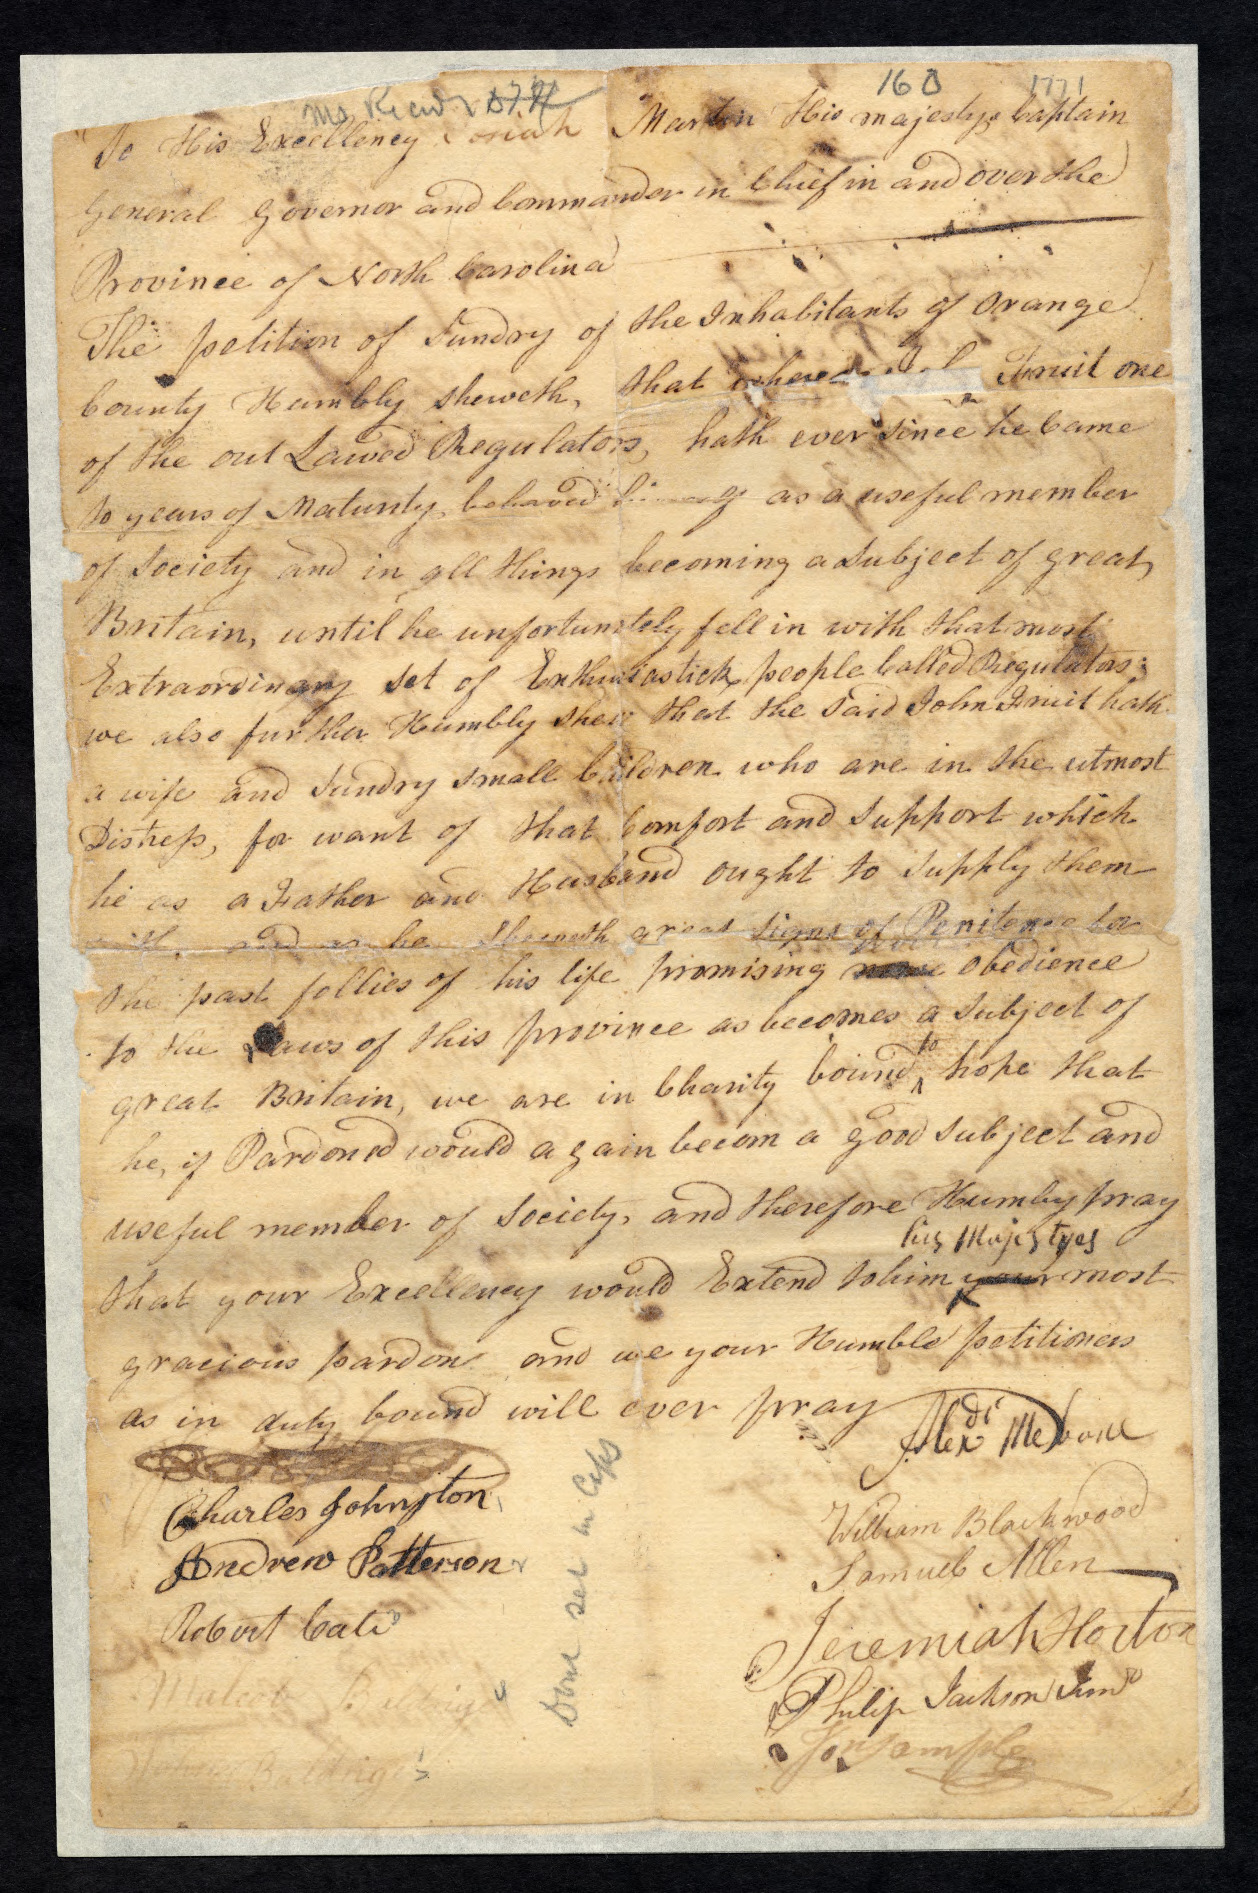 160 1771
To His Excellency Josiah Martin His majestys Captain
General Governor and Commander in Chief in and over the
Province of North Carolina
The petition of Sundry of the Inhabitants of Orange
County Humbly sheweth, that John Fruit one
of the out Lawed Regulators, hath ever since he Came
to years of Maturity, behaved as a useful member
of Society and in all things becoming a Subject of great
Britain, until he unfortunately fell in with that most
Extraordinary set of Enthusiastick people Called Regulators;
we also further Humbly shew that the said John Fruit hath
a wife and Sundry small Children who are in the utmost
Distress, for want of that Comfort and Support which
he as a Father and Husband ought to Supply them
with, and as he sheweth great Signs of Penitence for
the past follies of his life promising obedience
to the Laws of this province as becomes a Subject of
great Britain, we are in Charity bound to hope that
he, if Pardoned would again becom a good Subject and
useful member of Society, and therefore Humby pray
his Majestyes
that your Excellency would Extend to him your most
gracious pardon and we your Humble petitioners
as in duty bound will ever pray
Alexdr Mebane
Charles Johnston
William Blackwood
Andrew Patterson
Samuel Allen
Robert Cate
Jeremiah Horton
Philip Jackson Junr
Jos Sample
Baldrige
Done set in Caps